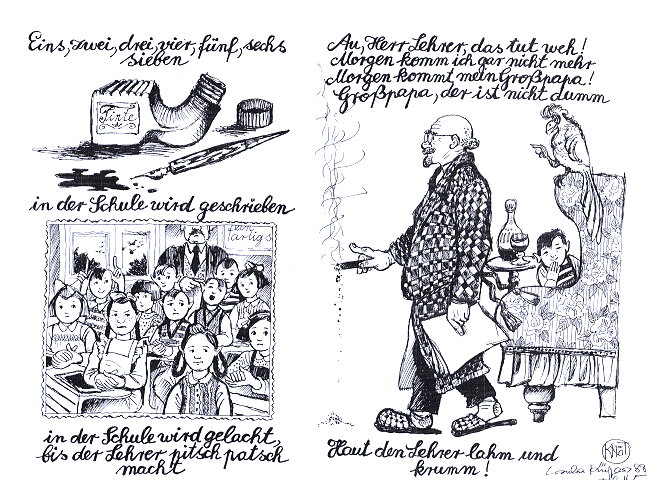 Eins, zwei, drei, vier, fünf, sechs
sieben
Tinte
in der Schule wird geschrieben
artig
in der Schule wird gelacht,
bis der Lehrer pitsch patsch
macht
Au, Herr Lehrer, das tut weh!
Morgen komm ich gar nicht mehr
Morgen kommt mein Großpapa!
Großpapa, der ist nicht dumm
Haut den Lehrer lahm und
krumm!